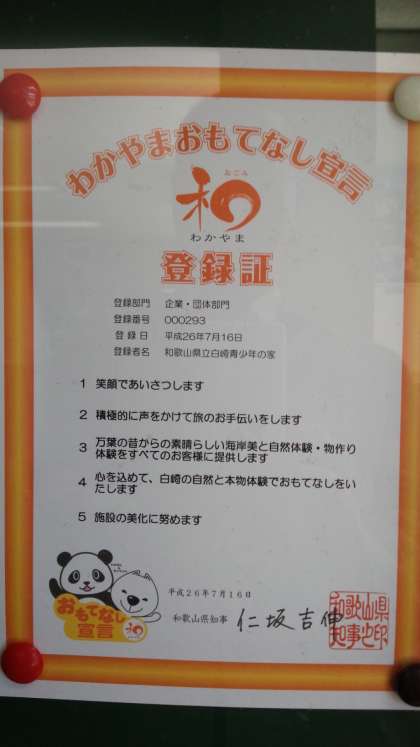 わかやまおもてなし宣言
なごみ
和
わかやま
登録証
登録部門 企業・団体部門
登録番号 000293
登録日 平成26年7月16日
登録者名 和歌山県立白崎青少年の家
1 笑顔であいさつします
2 積極的に声をかけて旅のお手伝いをします
3 万葉の昔からの素晴らしい海岸美と自然体験・物作り
体験をすべてのお客様に提供します
4 心を込めて、白崎の自然と本物体験でおもてなしをい
たします
5 施設の美化に努めます
おもてなし
宣言
和
平成26年7月16日
和歌山県知事 仁坂吉伸
和歌山県
知事之印